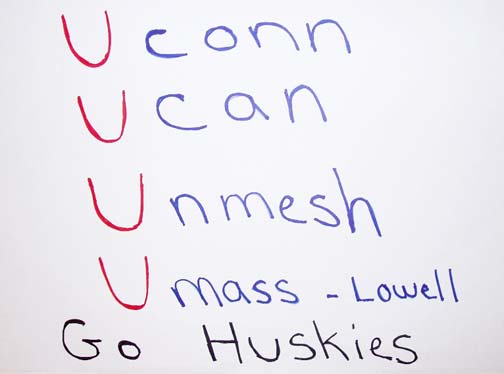 Uconn
Ucan
Unmesh
Umass - Lowell
Go Huskies